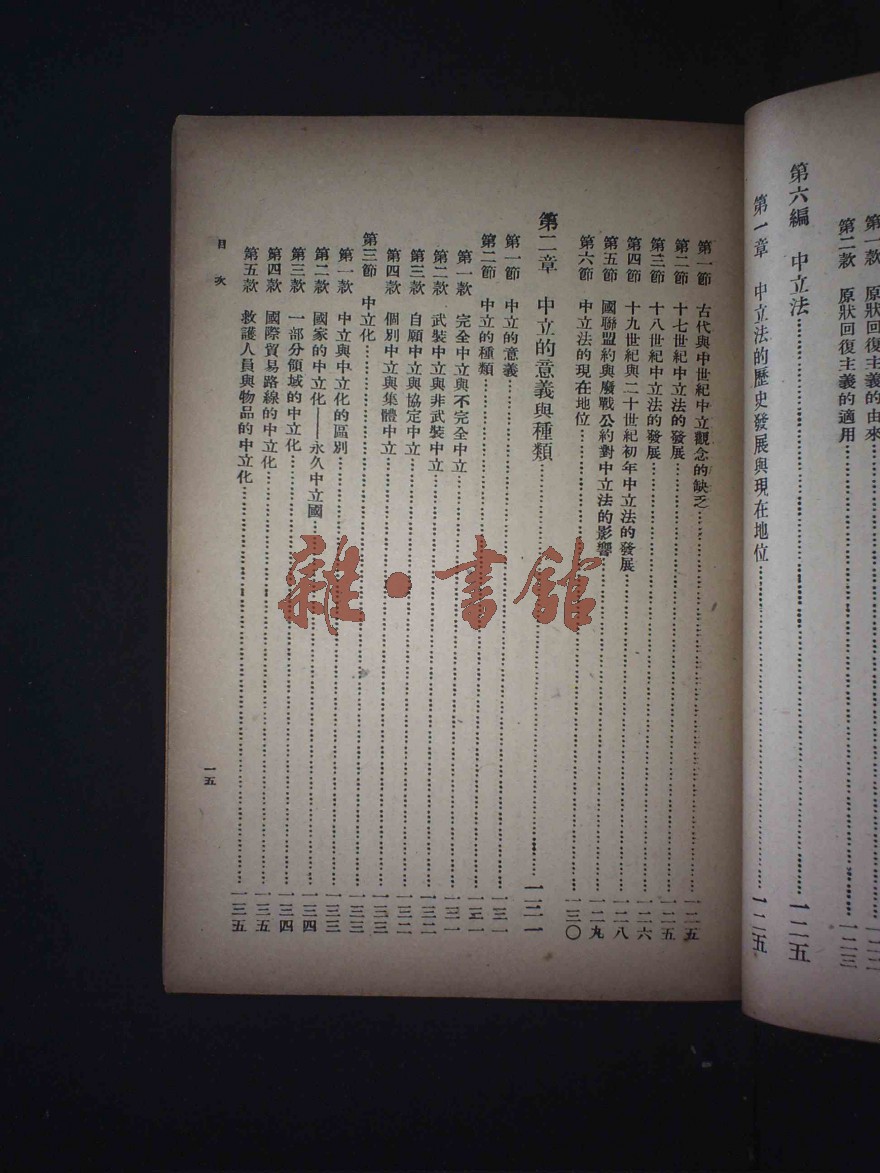 第一款 原狀回復主義的由來……一二二
第二款 原狀回復主義的適用……一二三
第六編 中立法……一二五
第一章 中立法的歷史發展與現在地位……一二五
第一節 古代與中世紀中立觀念的缺乏……一二五
第二節 十七世紀中立法的發展……一二五
第三節 十八世紀中立法的發展……一二六
第四節 十九世紀與二十世紀初年中立法的發展……一二八
第五節 國聯盟約與廢戰公約對中立法的影響……一二九
第六節 中立法的現在地位……一三〇
第二章 中立的意義與種類……一三一
第一節 中立的意義……一三一
第二節 中立的種類……一三一
第一款 完全中立與不完全中立……一三一
第二款 武裝中立與非武裝中立……一三二
第三款 自願中立與協定中立……一三二
第四款 個別中立與集體中立……一三三
第三節 中立化……一三三
第一款 中立與中立化的區別……一三三
第二款 國家的中立化——永久中立國……一三四
第三款 一部分領域的中立化……一三四
第四款 國際貿易路線的中立化……一三五
第五款 救護人員與物品的中立化……一三五
目次
一五
雜·書館